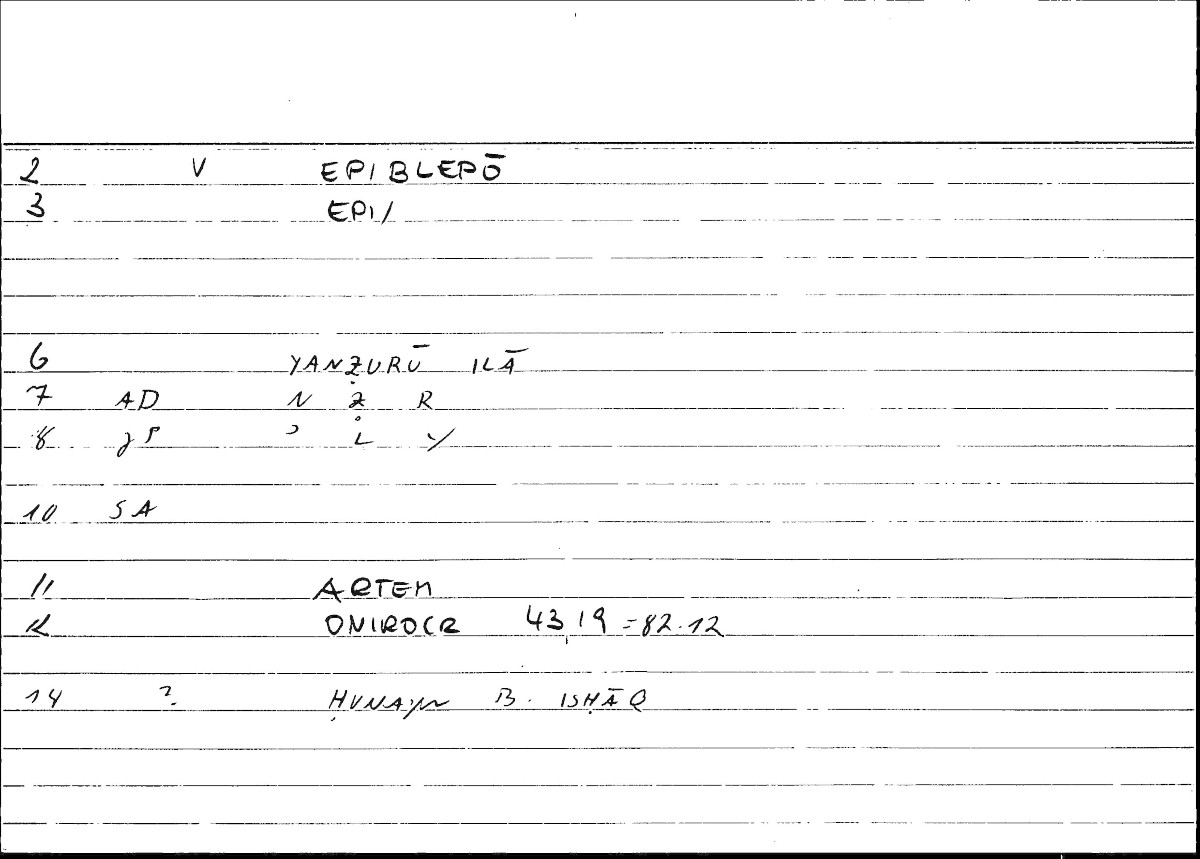 2 V EPIBLEPŌ
3 EPI/
6 YANẒURŪ ILĀ
7 AD N Ẓ R
8 ʾ L Y
10 SA
11 ARTEM
12 ONIROCR 43,19 = 82.12
14 ? ḤUNAYN B. ISḤĀQ